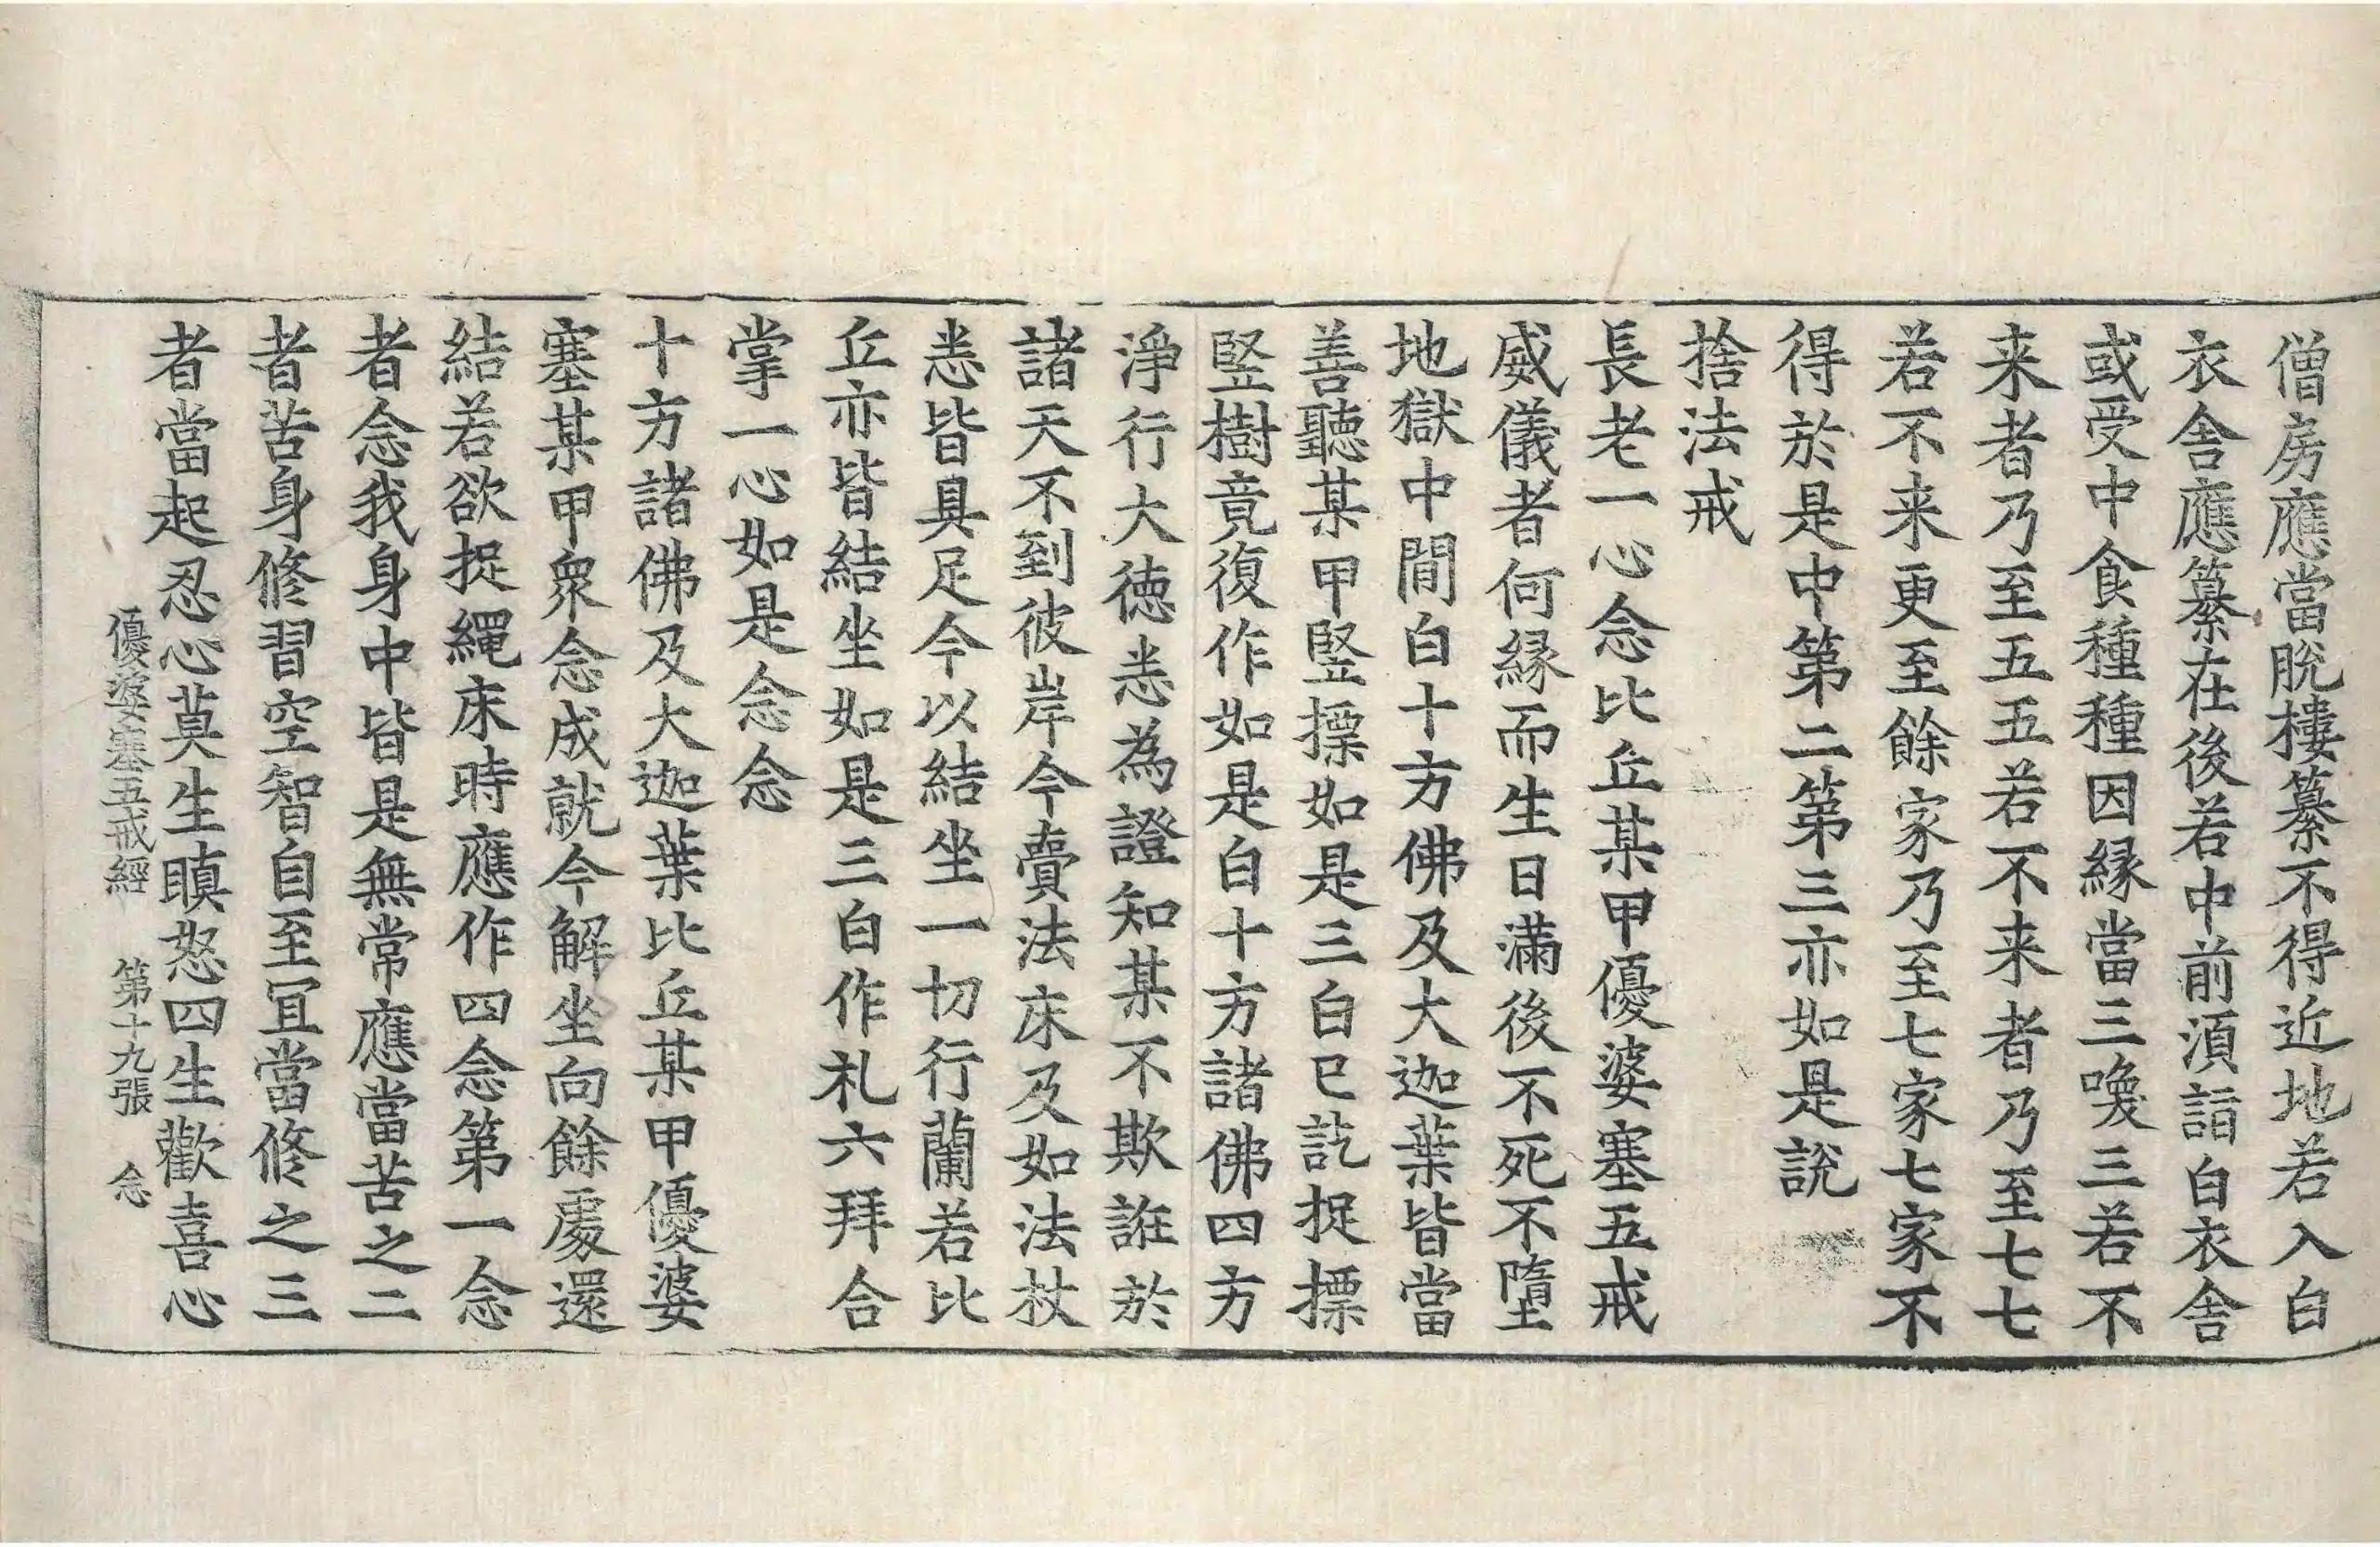 僧房應當脫樓纂不得近地若入白
衣舍應纂在後若中前湏詣白衣舍
或受中食種種因緣當三喚三若不
来者乃至五五若不来者乃至七七
若不来更至餘家乃至七家七家不
得於是中第二第三亦如是說
捨法戒
長老一心念比丘某甲優婆塞五戒
威儀者何緣而生日滿後不死不墮
地獄中間白十方佛及大迦葉皆當
善聽某甲竪摽如是三白已訖捉摽
竪樹竟復作如是白十方諸佛四方
淨行大德悉為證知某不欺誑於
諸天不到彼岸今賣法床及如法杖
悉皆具足今以結坐一切行蘭若比
丘亦皆結坐如是三白作札六拜合
掌一心如是念念
十方諸佛及大迦葉比丘某甲優婆
塞某甲衆念成就今解坐向餘處還
結若欲捉繩床時應作四念第一念
者念我身中皆是無常應當苦之二
者苦身修習空智自至冝當修之三
者當起忍心莫生瞋怒四生歡喜心
優婆塞五戒經 第十九張 念